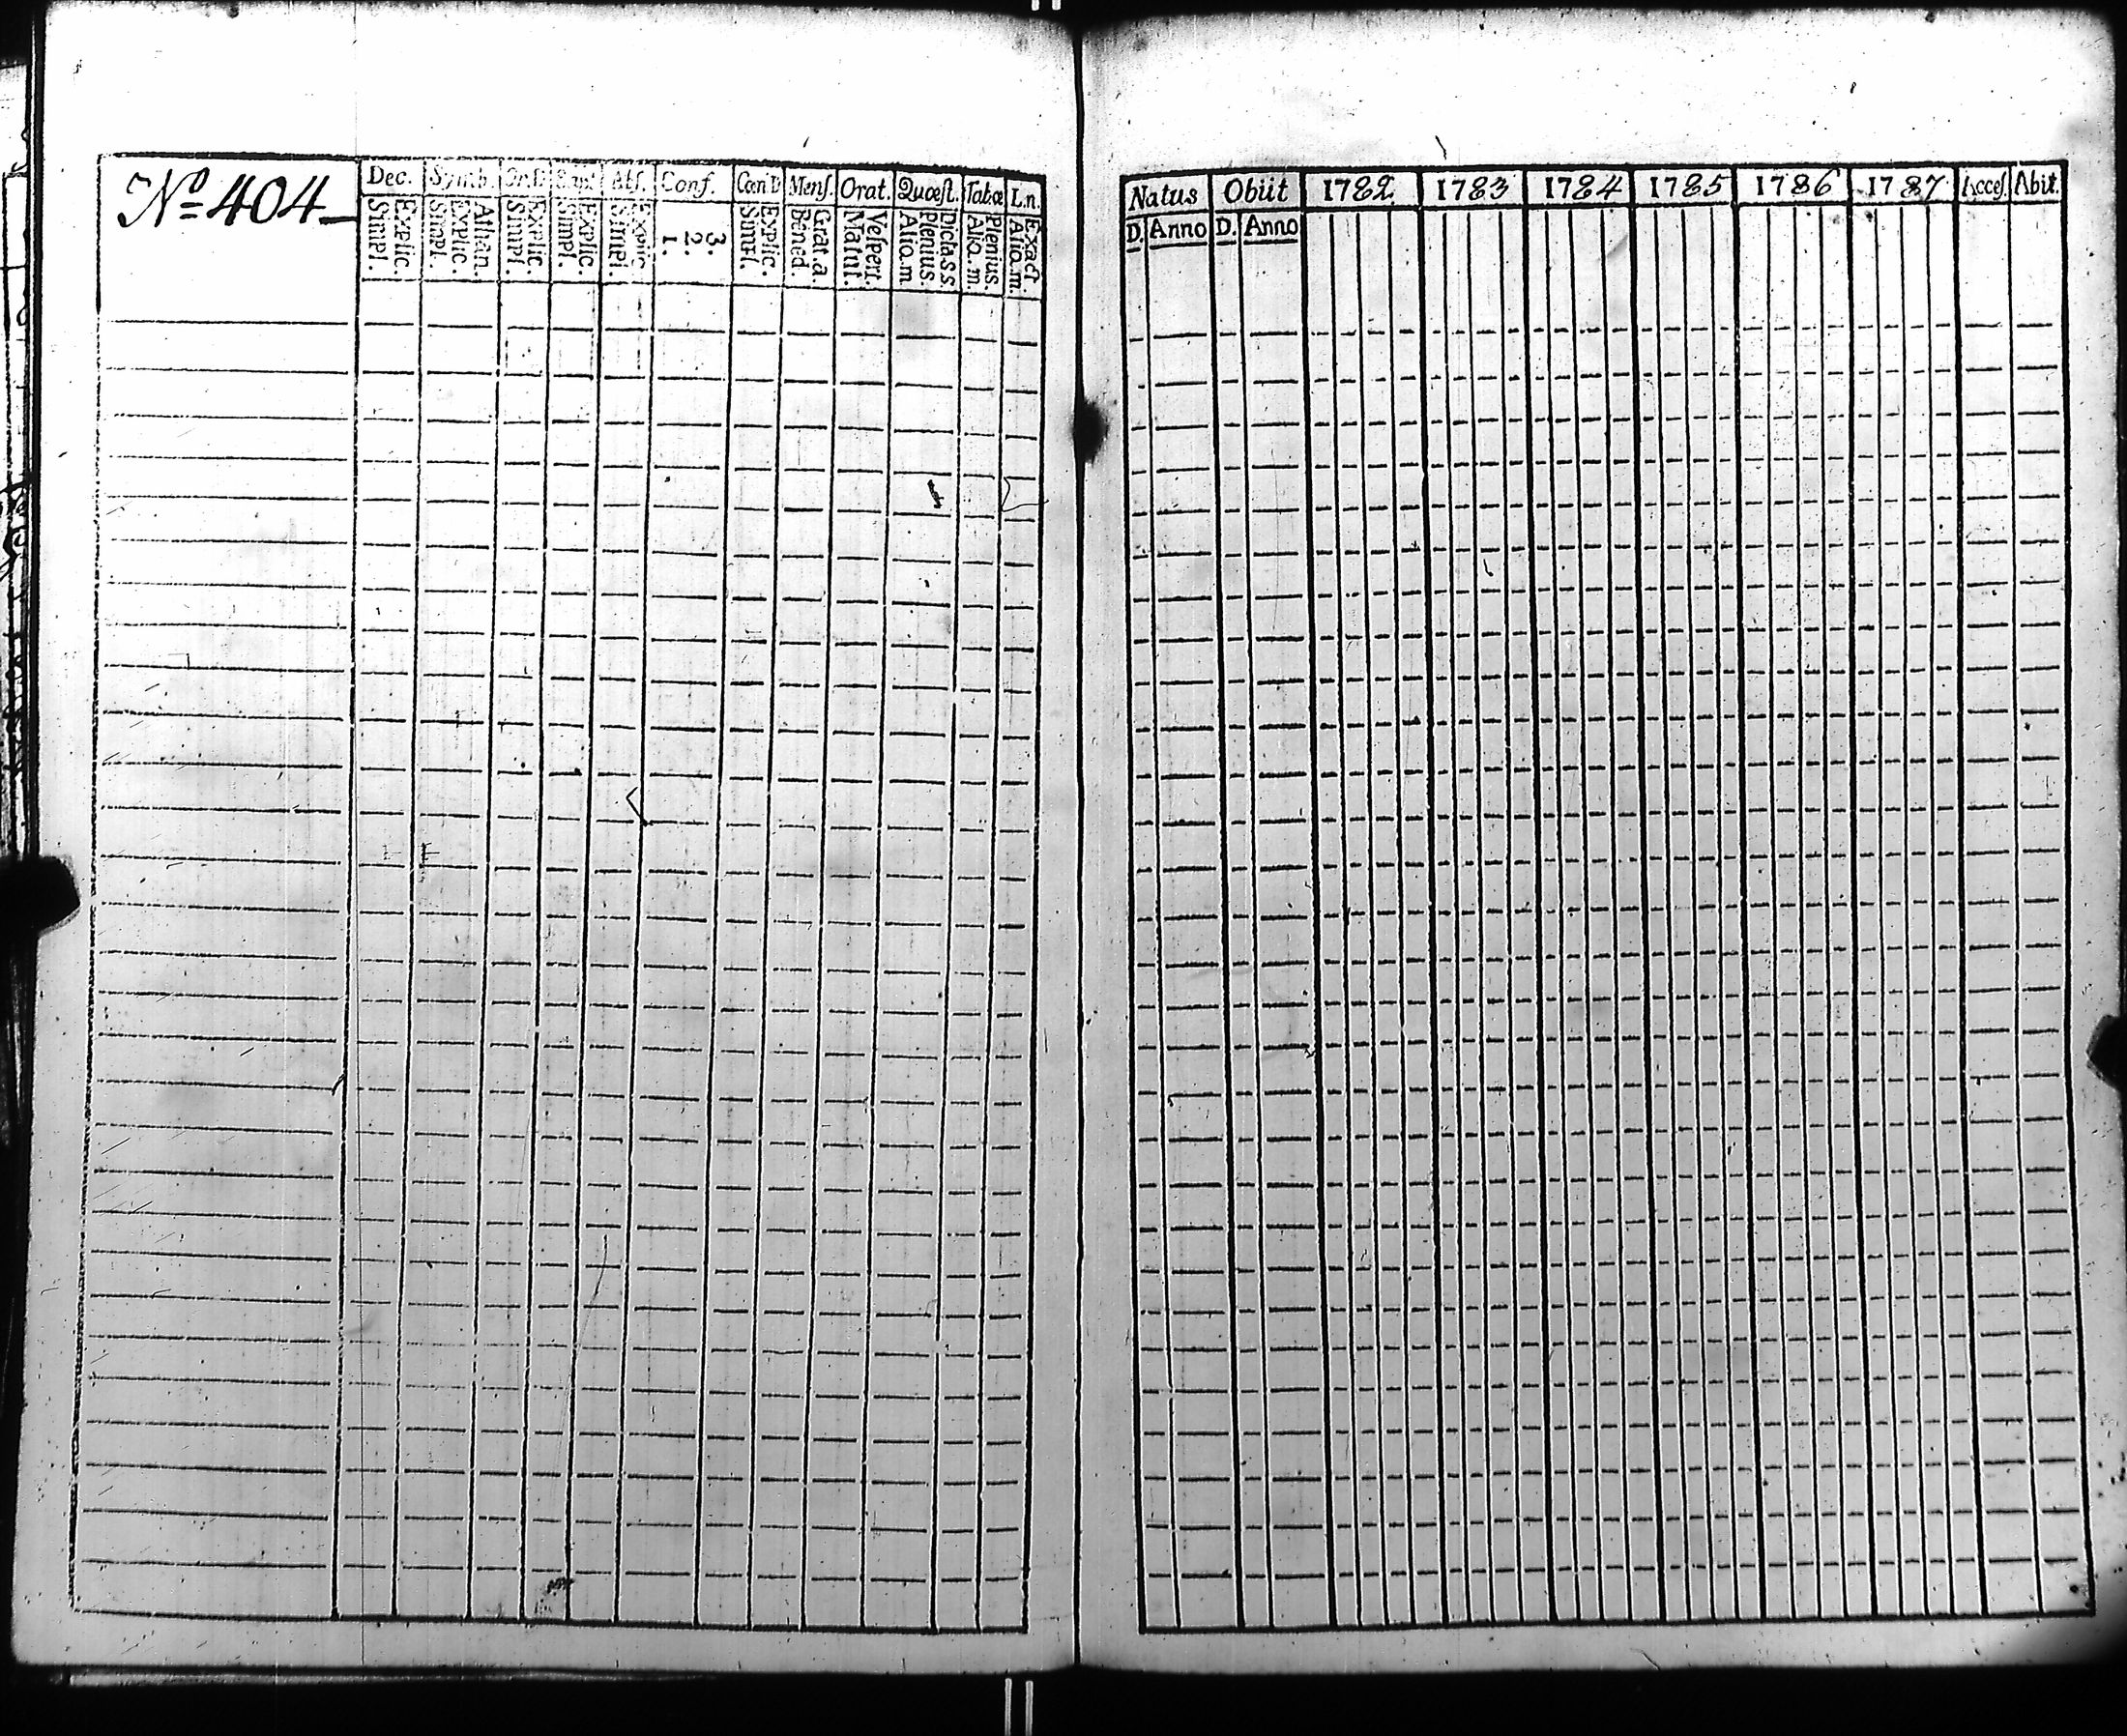 Nº 404
Dec. Symb. Or.D. Bapt. Abs. Conf. Cœn.D Mens. Orat. Quæst. Tab.œ L.n.
Explic. Simpl.
Athan. Explic. Simpl.
Explic. Simpl.
Explic. Simpl.
Explic. Simpl.
3. 2. 1.
Explic. Simpl.
Grat.a. Bened.
Vespert. Matut.
Dicta.s.s. Plenius. Alio.m
Plenius. Alio.m.
Exact. Alio.m.
Natus Obiit 1782 1783 1784 1785 1786 1787 Acces. Abit.
D. Anno D. Anno